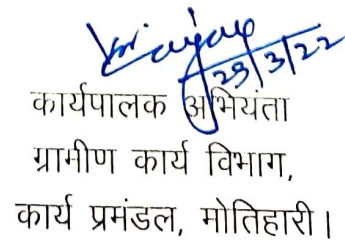 29/3/22
कार्यपालक अभियंता
ग्रामीण कार्य विभाग,
कार्य प्रमंडल, मोतिहारी।